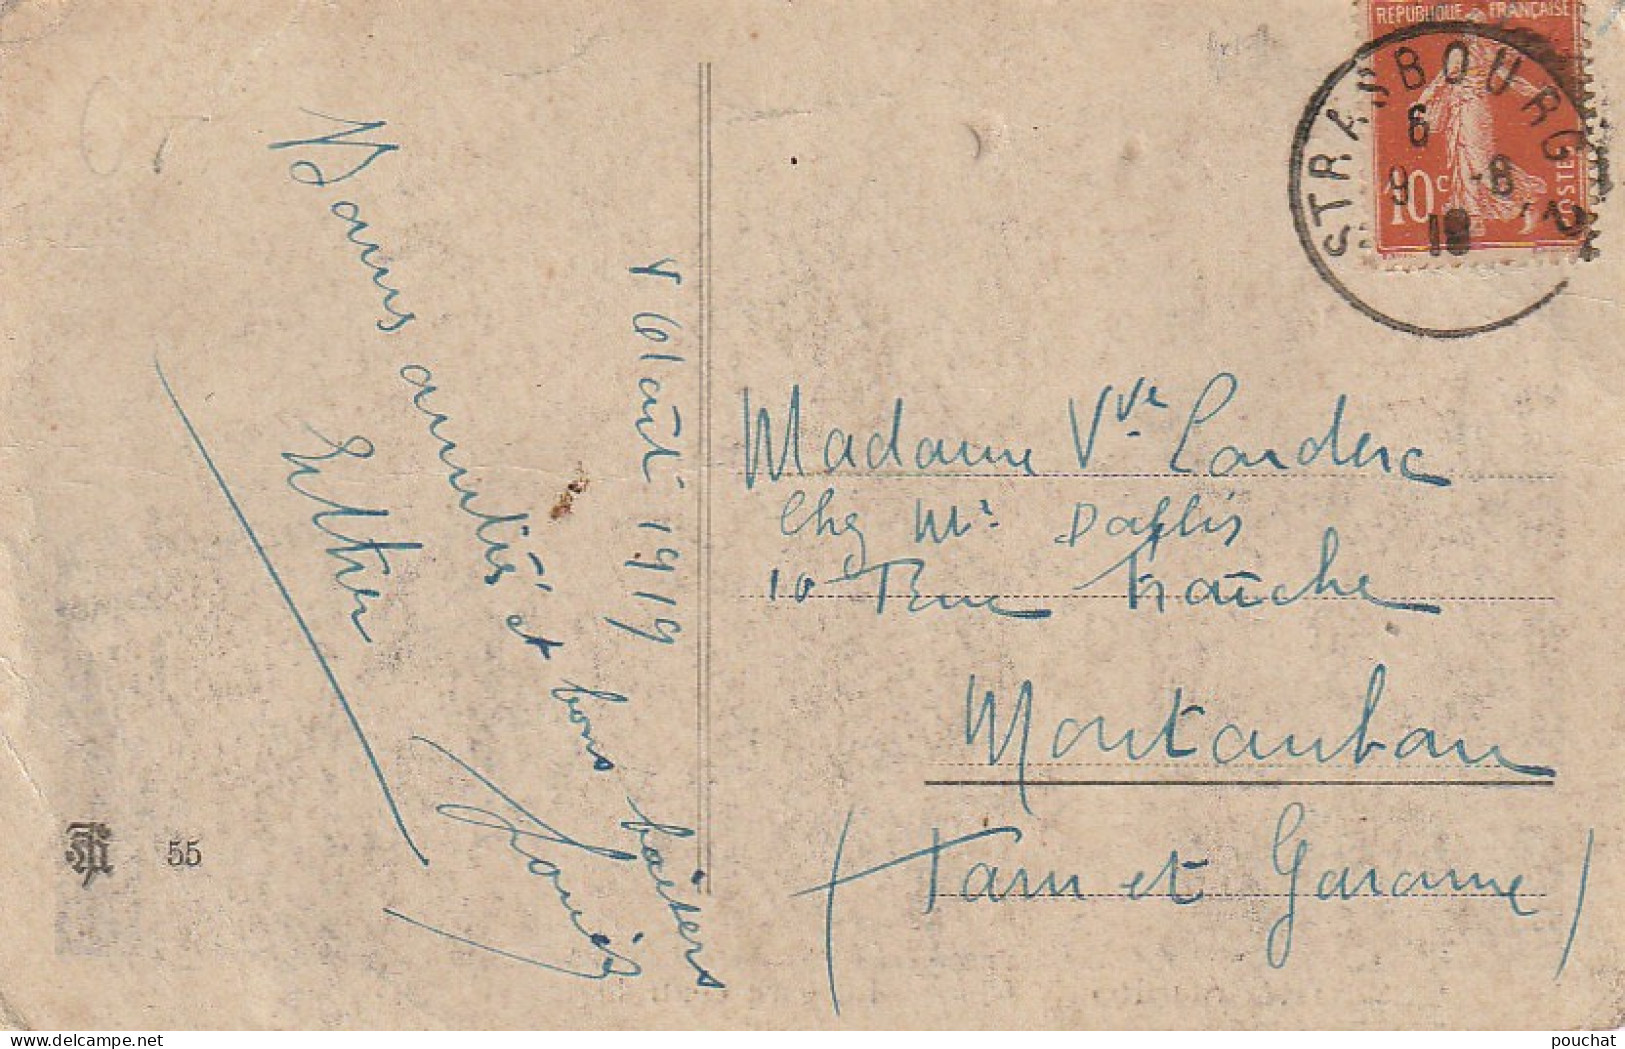 Bonnes amitiés et bons baisers
Esther
Louise
Août 1919
REPUBLIQUE FRANÇAISE
10c
POSTES
STRASBOURG
6
9 -8
19
Madame Vve Landerc
Chez Mr Dafflis
10 Rue Fraîche
Montauban
(Tarn et Garonne)
55
pouchat